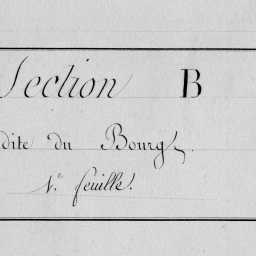 Section B
dite du Bourg
1.e feuille.